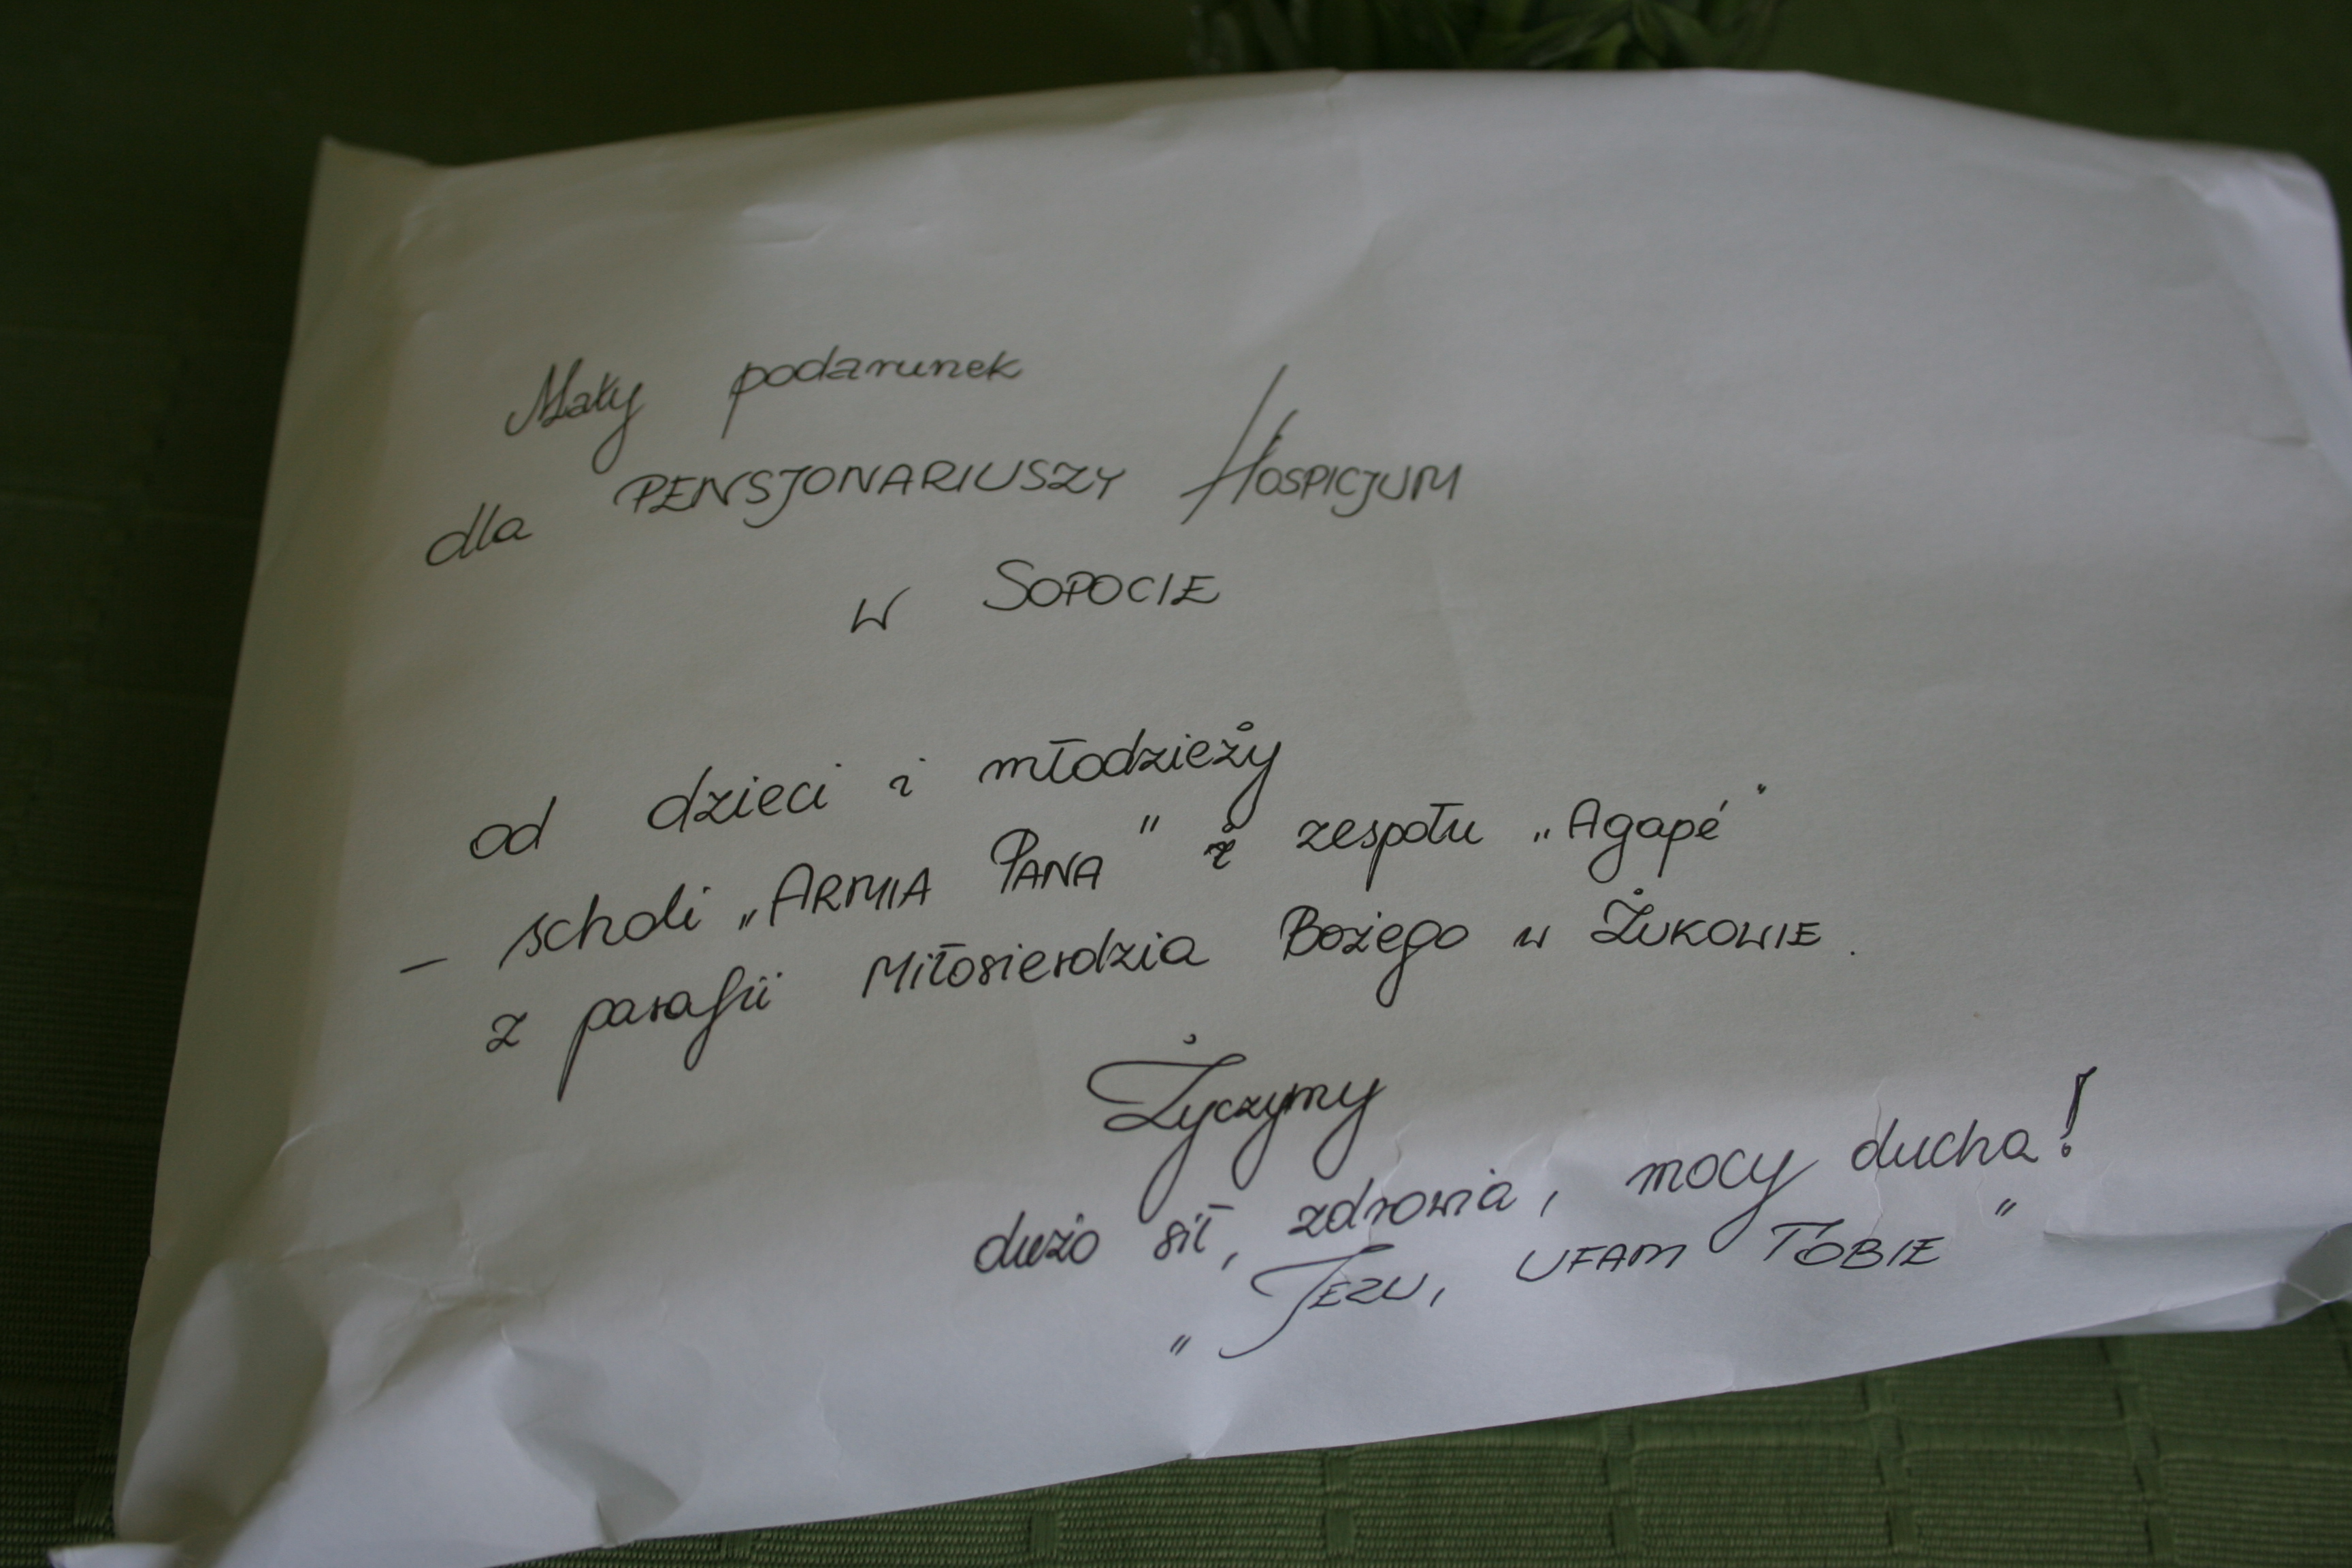 Mały podarunek
dla PENSJONARIUSZY HOSPICJUM
w SOPOCIE
od dzieci i młodzieży
– scholi „ARMIA PANA" i zespołu „Agapé"
z parafii Miłosierdzia Bożego w ŻUKOWIE.
Życzymy
dużo sił, zdrowia, mocy ducha!
„JEZU, UFAM TOBIE"